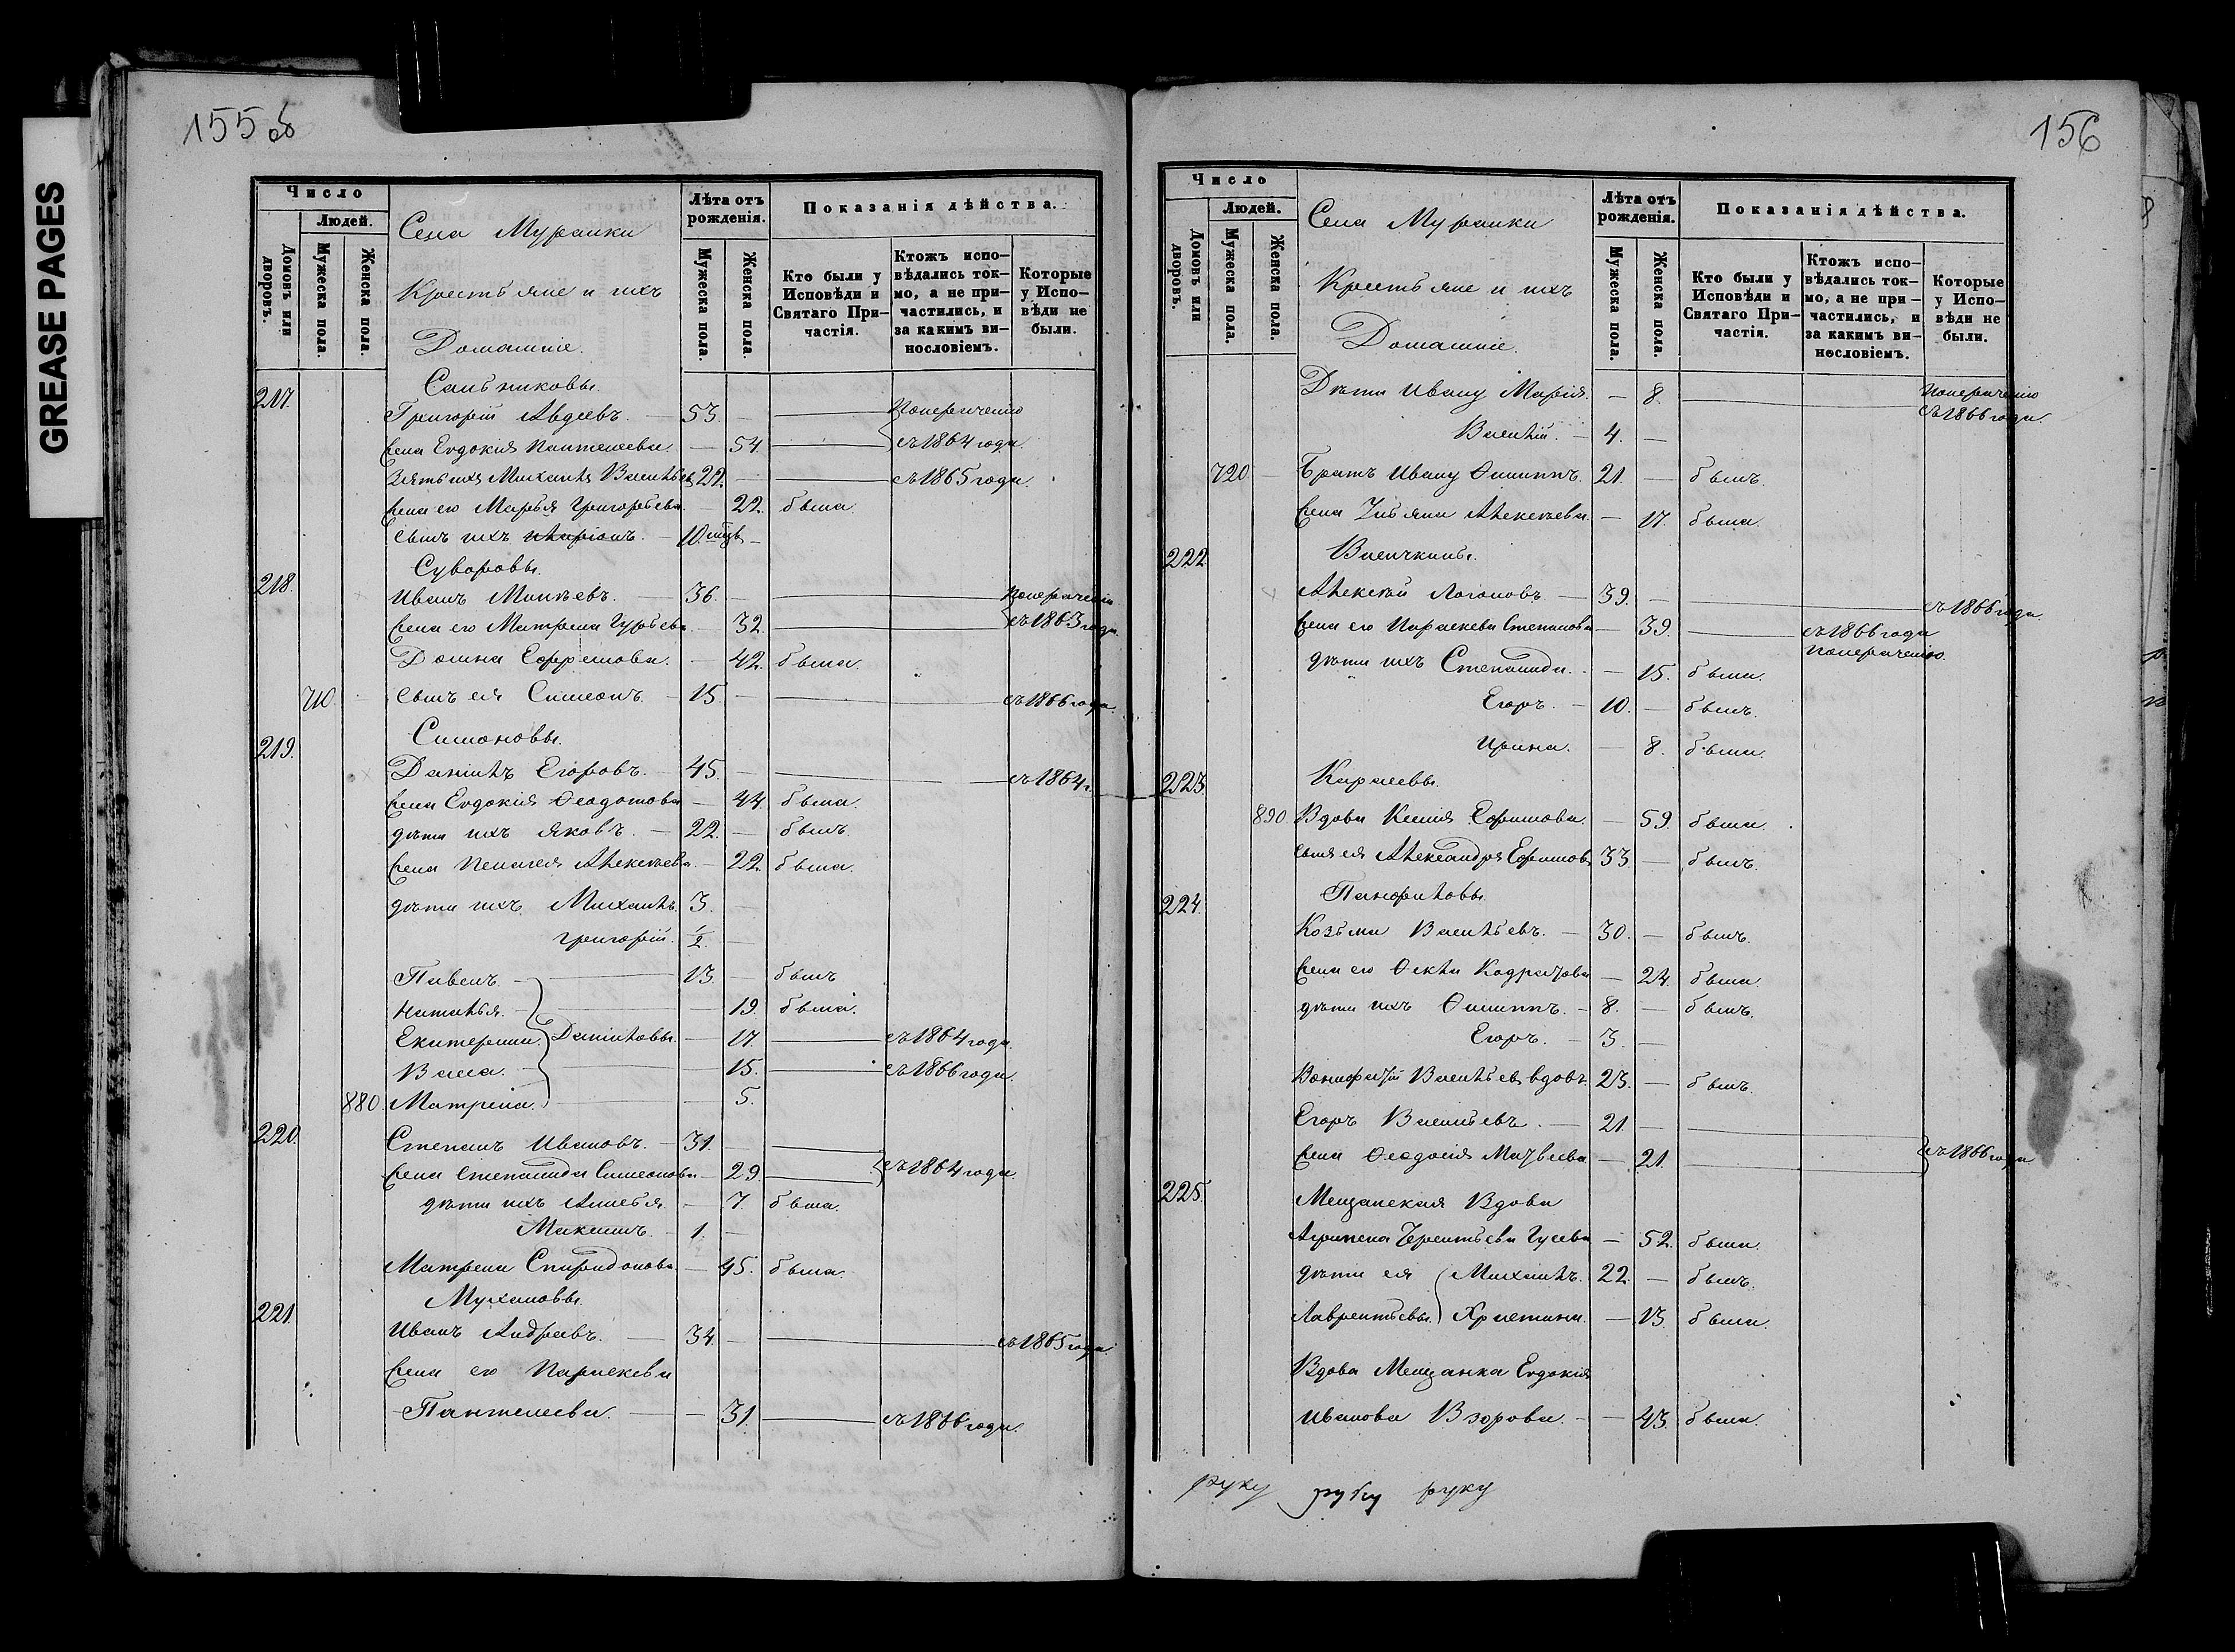 GREASE PAGES
155 об
Число
Людей.
Домовъ или дворовъ.
Мужеска пола.
Женска пола.
Села Муранки
Крестьяне и ихъ
Домашніе.
Лѣта отъ рожденія.
Мужеска пола.
Женска пола.
Показанія дѣйства.
Кто были у Исповѣди и Святаго При-
частія.
Ктожъ испо-
вѣдались ток-
мо, а не при-
частились, и
за какимъ ви-
нословіемъ.
Которые
у Испо-
вѣди не
были.
217. Сальниковы.
Григорій Авдеевъ. — 53. — Понераченію
жена Евдокія Пантелеева. — 54. съ 1864 года.
Зять ихъ Михаилъ Васильевъ 22. — съ 1865 года.
жена его Марья Григорьева. — 22. была.
сынъ ихъ Иларіонъ. — 10 мцъ —
218. Суворовы.
Иванъ Моисеевъ. — 36. — Понераченію
жена его Матрена Гурьева. — 32. съ 1863 года.
Домна Ефремова. — 42. была.
710. сынъ ея Симеонъ. — 15. — съ 1866 года.
219. Симоновы.
Даніилъ Егоровъ. — 45. — съ 1864 г.
жена Евдокія Ѳеодотова — 44. была.
дѣти ихъ Яковъ. — 22. — былъ.
жена Пелагея Алексѣева. — 22. была.
дѣти ихъ Михаилъ. 3. —
Григорій. 1/2. —
Павелъ. — 13. — былъ
Наталья. — 19. была.
Екатерина. Даніиловы. — 17. — съ 1864 года.
Васса. — 15. — съ 1866 года.
880. Матрена. — 5.
220. Степанъ Ивановъ. — 31. —
жена Степанида Симеонова — 29. съ 1864 года.
дѣти ихъ — 7. была.
Максимъ. — 1. —
Матрена Спиридонова. — 45. была.
221. Мухановы.
Иванъ Андреевъ. — 34. — съ 1865 года.
жена его Параскева
Пантелеева. — 31. — съ 1866 года.
156
Число
Людей.
Домовъ или дворовъ.
Мужеска пола.
Женска пола.
Села Муранки
Крестьяне и ихъ
Домашніе.
Лѣта отъ рожденія.
Мужеска пола.
Женска пола.
Показанія дѣйства.
Кто были у Исповѣди и Святаго При-
частія.
Ктожъ испо-
вѣдались ток-
мо, а не при-
частились, и
за какимъ ви-
нословіемъ.
Которые
у Испо-
вѣди не
были.
Дѣти Ивану Марія. — 8. — Понераченію съ 1866 года.
Василій. — 4. —
720 — Братъ Ивану Филиппъ. 21. — былъ.
жена Алексѣева. — 17. была.
222. Васичкины.
Алексѣй Логоновъ — 39. — съ 1866 года.
жена его Параскева Степанова — 39. — съ 1866 года понераченію.
дѣти ихъ Степанида. — 15. была.
Егоръ. — 10. — былъ.
Ирина. — 8. была.
223. Каралевы.
890 Вдова Ксенія Ефимова. — 59. была.
сынъ ея Александръ Ефимовъ 33 — былъ.
224. Панфиловы.
Козьма Васильевъ. — 30. — былъ.
жена его Ѳекла — 24. была.
дѣти ихъ Филиппъ. — 8. — былъ.
Егоръ. — 3. —
Вонифатій Васильевъ вдовъ. 23. — былъ.
Егоръ Васильевъ. — 21. —
жена Ѳеодосія Матвѣева — 21. съ 1866 года
225. Мещанская Вдова
Агрипена Терентьева Гусева — 52. была.
дѣти ея Михаилъ. 22. — былъ.
Лаврентьевы. Христина. — 13. была.
Вдова Мещанка Евдокія
Иванова Взорова. — 43. была.
руку руку руку